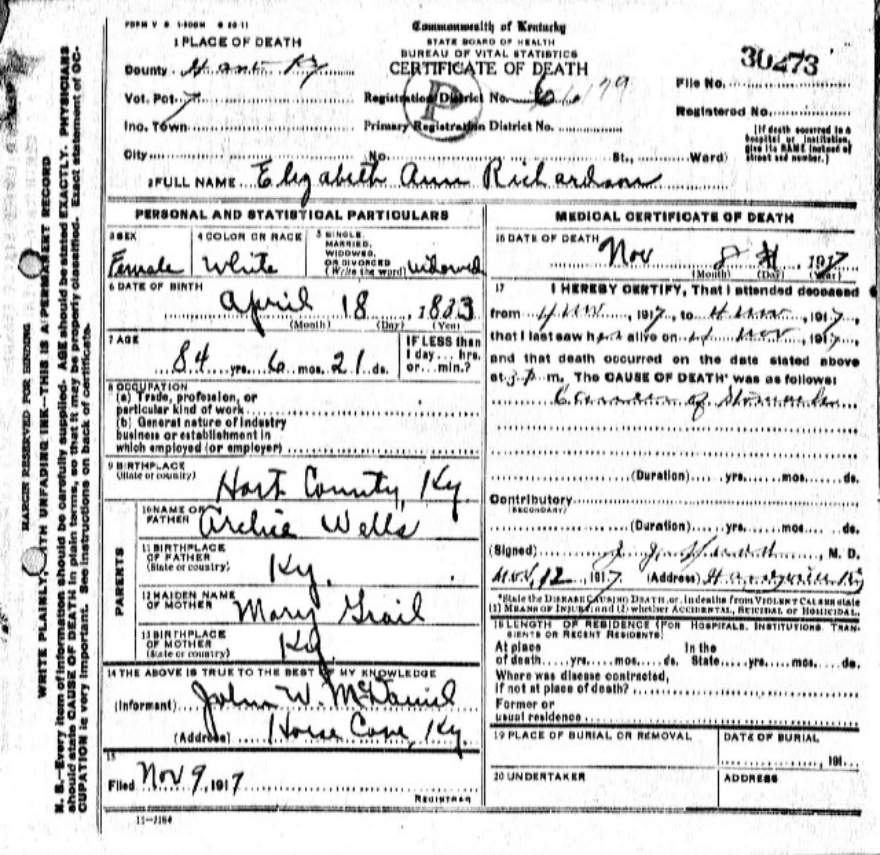 FORM V S 1-500M 8 26 11
Commonwealth of Kentucky
STATE BOARD OF HEALTH
BUREAU OF VITAL STATISTICS
CERTIFICATE OF DEATH
1 PLACE OF DEATH
County Hart Ky
Vot. Pct. 7
Inc. Town
City No. St., Ward)
Registration District No.
Primary Registration District No.
P
30273
File No.
Registered No.
[If death occurred in a
hospital or institution,
give its NAME instead of
street and number.]
2 FULL NAME Elizabeth Ann Richardson
PERSONAL AND STATISTICAL PARTICULARS
3 SEX
Female
4 COLOR OR RACE
White
5 SINGLE,
MARRIED,
WIDOWED,
OR DIVORCED
(Write the word) widowed
6 DATE OF BIRTH
April 18, 1833
(Month) (Day) (Year)
7 AGE
84 yrs. 6 mos. 21 ds.
IF LESS than
1 day... hrs.
or... min.?
8 OCCUPATION
(a) Trade, profession, or
particular kind of work
(b) General nature of industry
business or establishment in
which employed (or employer)
9 BIRTHPLACE
(State or country)
Hart County, Ky.
PARENTS
10 NAME OF
FATHER Archie Wells
11 BIRTHPLACE
OF FATHER
(State or country) Ky.
12 MAIDEN NAME
OF MOTHER Mary Grail
13 BIRTHPLACE
OF MOTHER
(State or country) Ky
14 THE ABOVE IS TRUE TO THE BEST OF MY KNOWLEDGE
(Informant) John W. McDaniel
(Address) Horse Cave, Ky.
15
Filed Nov 9, 1917
REGISTRAR
11-3184
MEDICAL CERTIFICATE OF DEATH
16 DATE OF DEATH
Nov 8, 1917
(Month) (Day) (Year)
17 I HEREBY CERTIFY, That I attended deceased
from 4 Nov, 1917, to 4 Nov, 1917,
that I last saw her alive on 4 Nov, 1917,
and that death occurred on the date stated above
at 3 P m. The CAUSE OF DEATH* was as follows:
Cancer of Stomach
(Duration) yrs. mos. ds.
Contributory
(SECONDARY)
(Duration) yrs. mos. ds.
(Signed) , M. D.
Nov, 12, 1917 (Address) Hardyville Ky
*State the DISEASE CAUSING DEATH, or, in deaths from VIOLENT CAUSES state
(1) MEANS OF INJURY; and (2) whether ACCIDENTAL, SUICIDAL or HOMICIDAL.
18 LENGTH OF RESIDENCE (FOR HOSPITALS, INSTITUTIONS, TRAN-
SIENTS OR RECENT RESIDENTS)
At place In the
of death yrs. mos. ds. State yrs. mos. ds.
Where was disease contracted,
if not at place of death?
Former or
usual residence
19 PLACE OF BURIAL OR REMOVAL
DATE OF BURIAL
, 191
20 UNDERTAKER
ADDRESS
MARGIN RESERVED FOR BINDING
WRITE PLAINLY, WITH UNFADING INK—THIS IS A PERMANENT RECORD
N. B.—Every item of information should be carefully supplied. AGE should be stated EXACTLY. PHYSICIANS
should state CAUSE OF DEATH in plain terms, so that it may be properly classified. Exact statement of OC-
CUPATION is very important. See instructions on back of certificate.